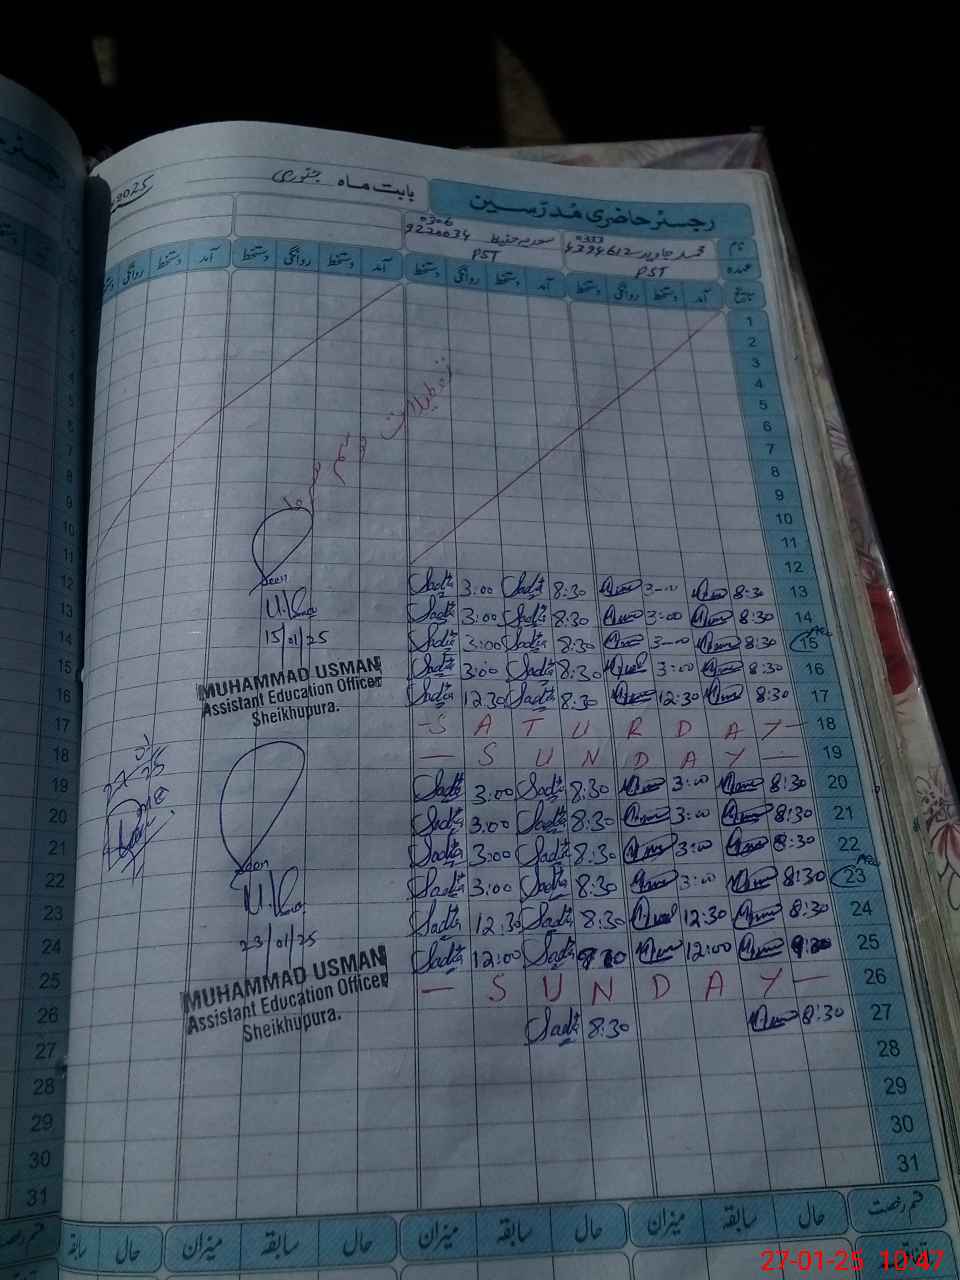 رجسٹر حاضری مدرسین
بابت ماہ جنوری 2025
نام
0333
4394612
0306
9220034
عہدہ PST PST
تاریخ آمد دستخط روانگی دستخط آمد دستخط روانگی دستخط آمد دستخط روانگی دستخط آمد روانگی
1
2
3
4
5
6
7
8
9
10
11
12
تعطیلات موسم سرما
13 8:30 3:00 8:30 Sadia 3:00 Sadia
14 8:30 3:00 8:30 Sadia 3:00 Sadia
15 8:30 3:00 8:30 Sadia 3:00 Sadia
16 8:30 3:00 8:30 Sadia 3:00 Sadia
17 8:30 12:30 8:30 Sadia 12:30 Sadia
18 – S A T U R D A Y –
19 – S U N D A Y –
20 8:30 3:00 8:30 Sadia 3:00 Sadia
21 8:30 3:00 8:30 Sadia 3:00 Sadia
22 8:30 3:00 8:30 Sadia 3:00 Sadia
23 8:30 3:00 8:30 Sadia 3:00 Sadia
24 8:30 12:30 8:30 Sadia 12:30 Sadia
25 12:00 Sadia 12:00 Sadia
26 – S U N D A Y –
27 8:30 8:30 Sadia
28
29
30
31
Seen
15/01/25
MUHAMMAD USMAN
Assistant Education Officer
Sheikhupura.
Seen
23/01/25
MUHAMMAD USMAN
Assistant Education Officer
Sheikhupura.
قسم رخصت حال سابقہ میزان حال سابقہ میزان حال سابقہ میزان حال سابقہ
27-01-25 10:47